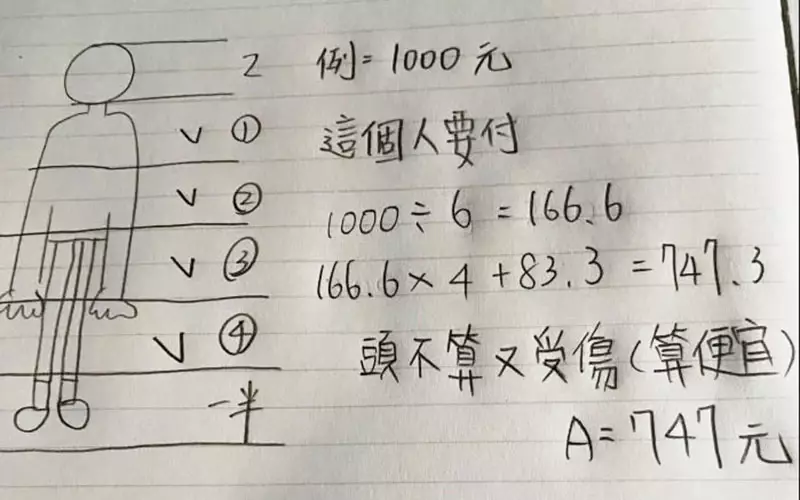 Z 例=1000元
V ① 這個人要付
V ② 1000÷6=166.6
V ③ 166.6×4+83.3=747.3
V ④ 頭不算又受傷(算便宜)
一半 A=747元